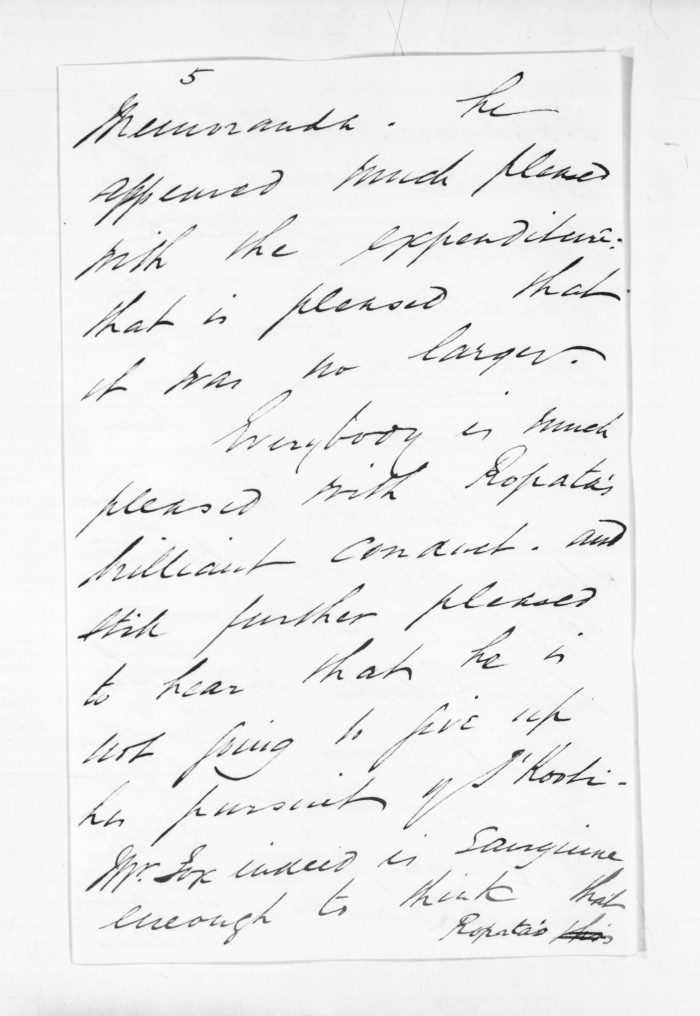 5
Memoranda. he
appeared much pleased
with the expenditure:
that is pleased that
it was no larger.
Everybody is much
pleased with Ropata's
brilliant conduct. and
still further pleased
to hear that he is
not going to give up
his pursuit of T' Kooti-
Mr. Fox indeed is sanguine
enough to think that
Ropata's this